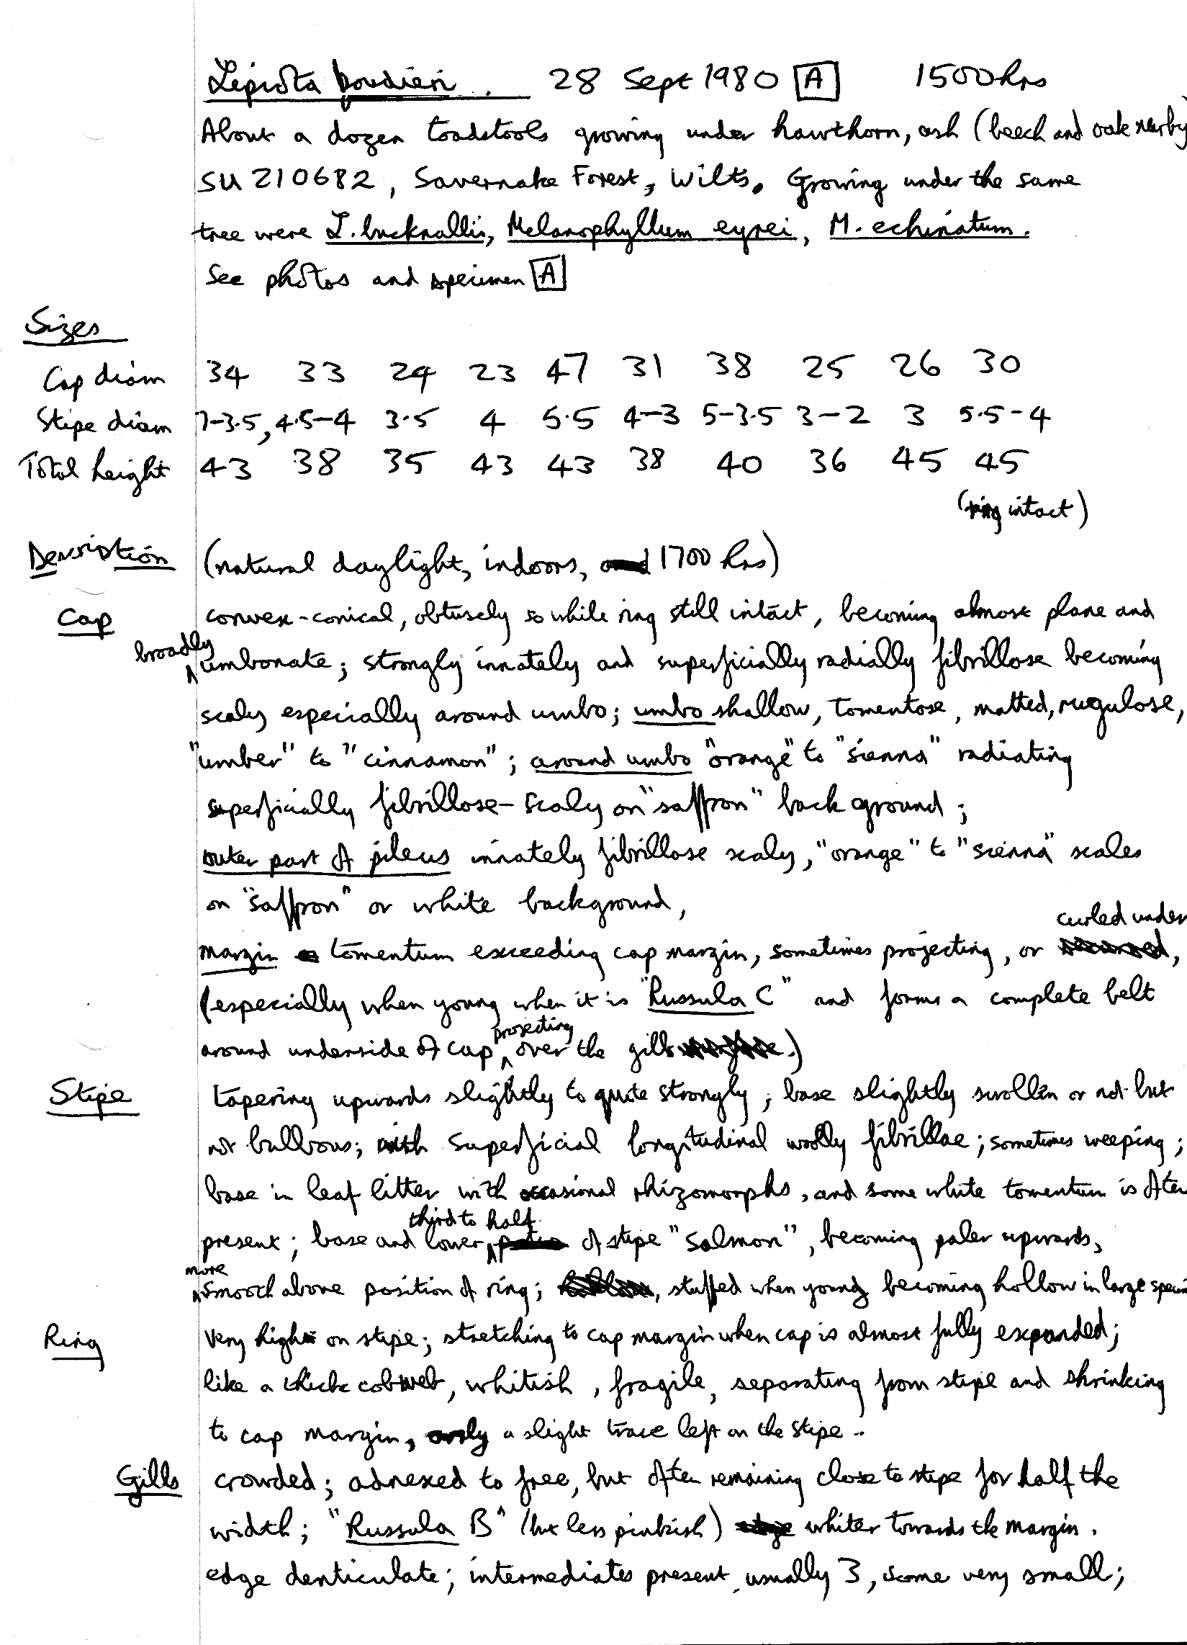 Lepiota boudieri. 28 Sept 1980 A 1500hrs
About a dozen toadstools growing under hawthorn, ash (beech and oak nearby)
SU 210682, Savernake Forest, Wilts. Growing under the same
tree were L. bucknallii, Melanophyllum eyrei, M. echinatum.
See photos and specimen A
Sizes
Cap diam 34 33 24 23 47 31 38 25 26 30
Stipe diam 7-3.5, 4.5-4 3.5 4 5.5 4-3 5-3.5 3-2 3 5.5-4
Total height 43 38 35 43 43 38 40 36 45 45
(ring intact)
Description (natural daylight, indoors, 1700 hrs)
Cap convex-conical, obtusely so while ring still intact, becoming almost plane and
broadly umbonate; strongly innately and superficially radially fibrillose becoming
scaly especially around umbo; umbo shallow, tomentose, matted, rugulose,
"umber" to "cinnamon"; around umbo "orange" to "sienna" radiating
superficially fibrillose-scaly on "saffron" background;
outer part of pileus innately fibrillose scaly, "orange" to "sienna" scales
on "saffron" or white background,
margin tomentum exceeding cap margin, sometimes projecting, or curled under,
(especially when young when it is "Russula C" and forms a complete belt
around underside of cap projecting over the gills.)
Stipe tapering upwards slightly to quite strongly; base slightly swollen or not but
not bulbous; with superficial longitudinal woolly fibrillae; sometimes weeping;
base in leaf litter with occasional rhizomorphs, and some white tomentum is often
present; base and lower third to half of stipe "Salmon", becoming paler upwards,
more smooth above position of ring; stuffed when young becoming hollow in large
Ring Very high on stipe; stretching to cap margin when cap is almost fully expanded;
like a thick cobweb, whitish, fragile, separating from stipe and shrinking
to cap margin, only a slight trace left on the stipe.
Gills crowded; adnexed to free, but often remaining close to stipe for half the
width; "Russula B" (but less pinkish) whiter towards the margin.
edge denticulate; intermediates present, usually 3, some very small;